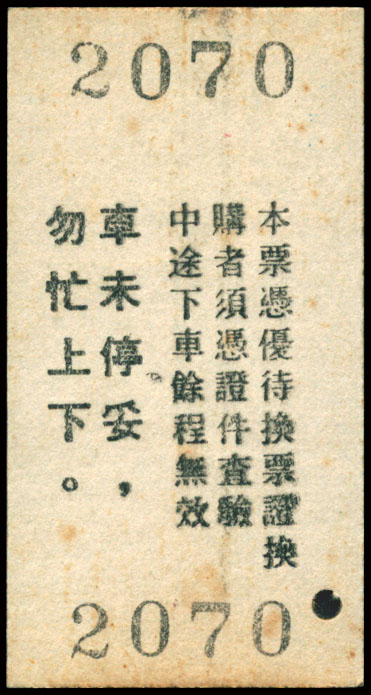 2070
本票憑優待換票證換
購者須憑證件查驗
中途下車餘程無效
車未停妥，
勿忙上下。
2070